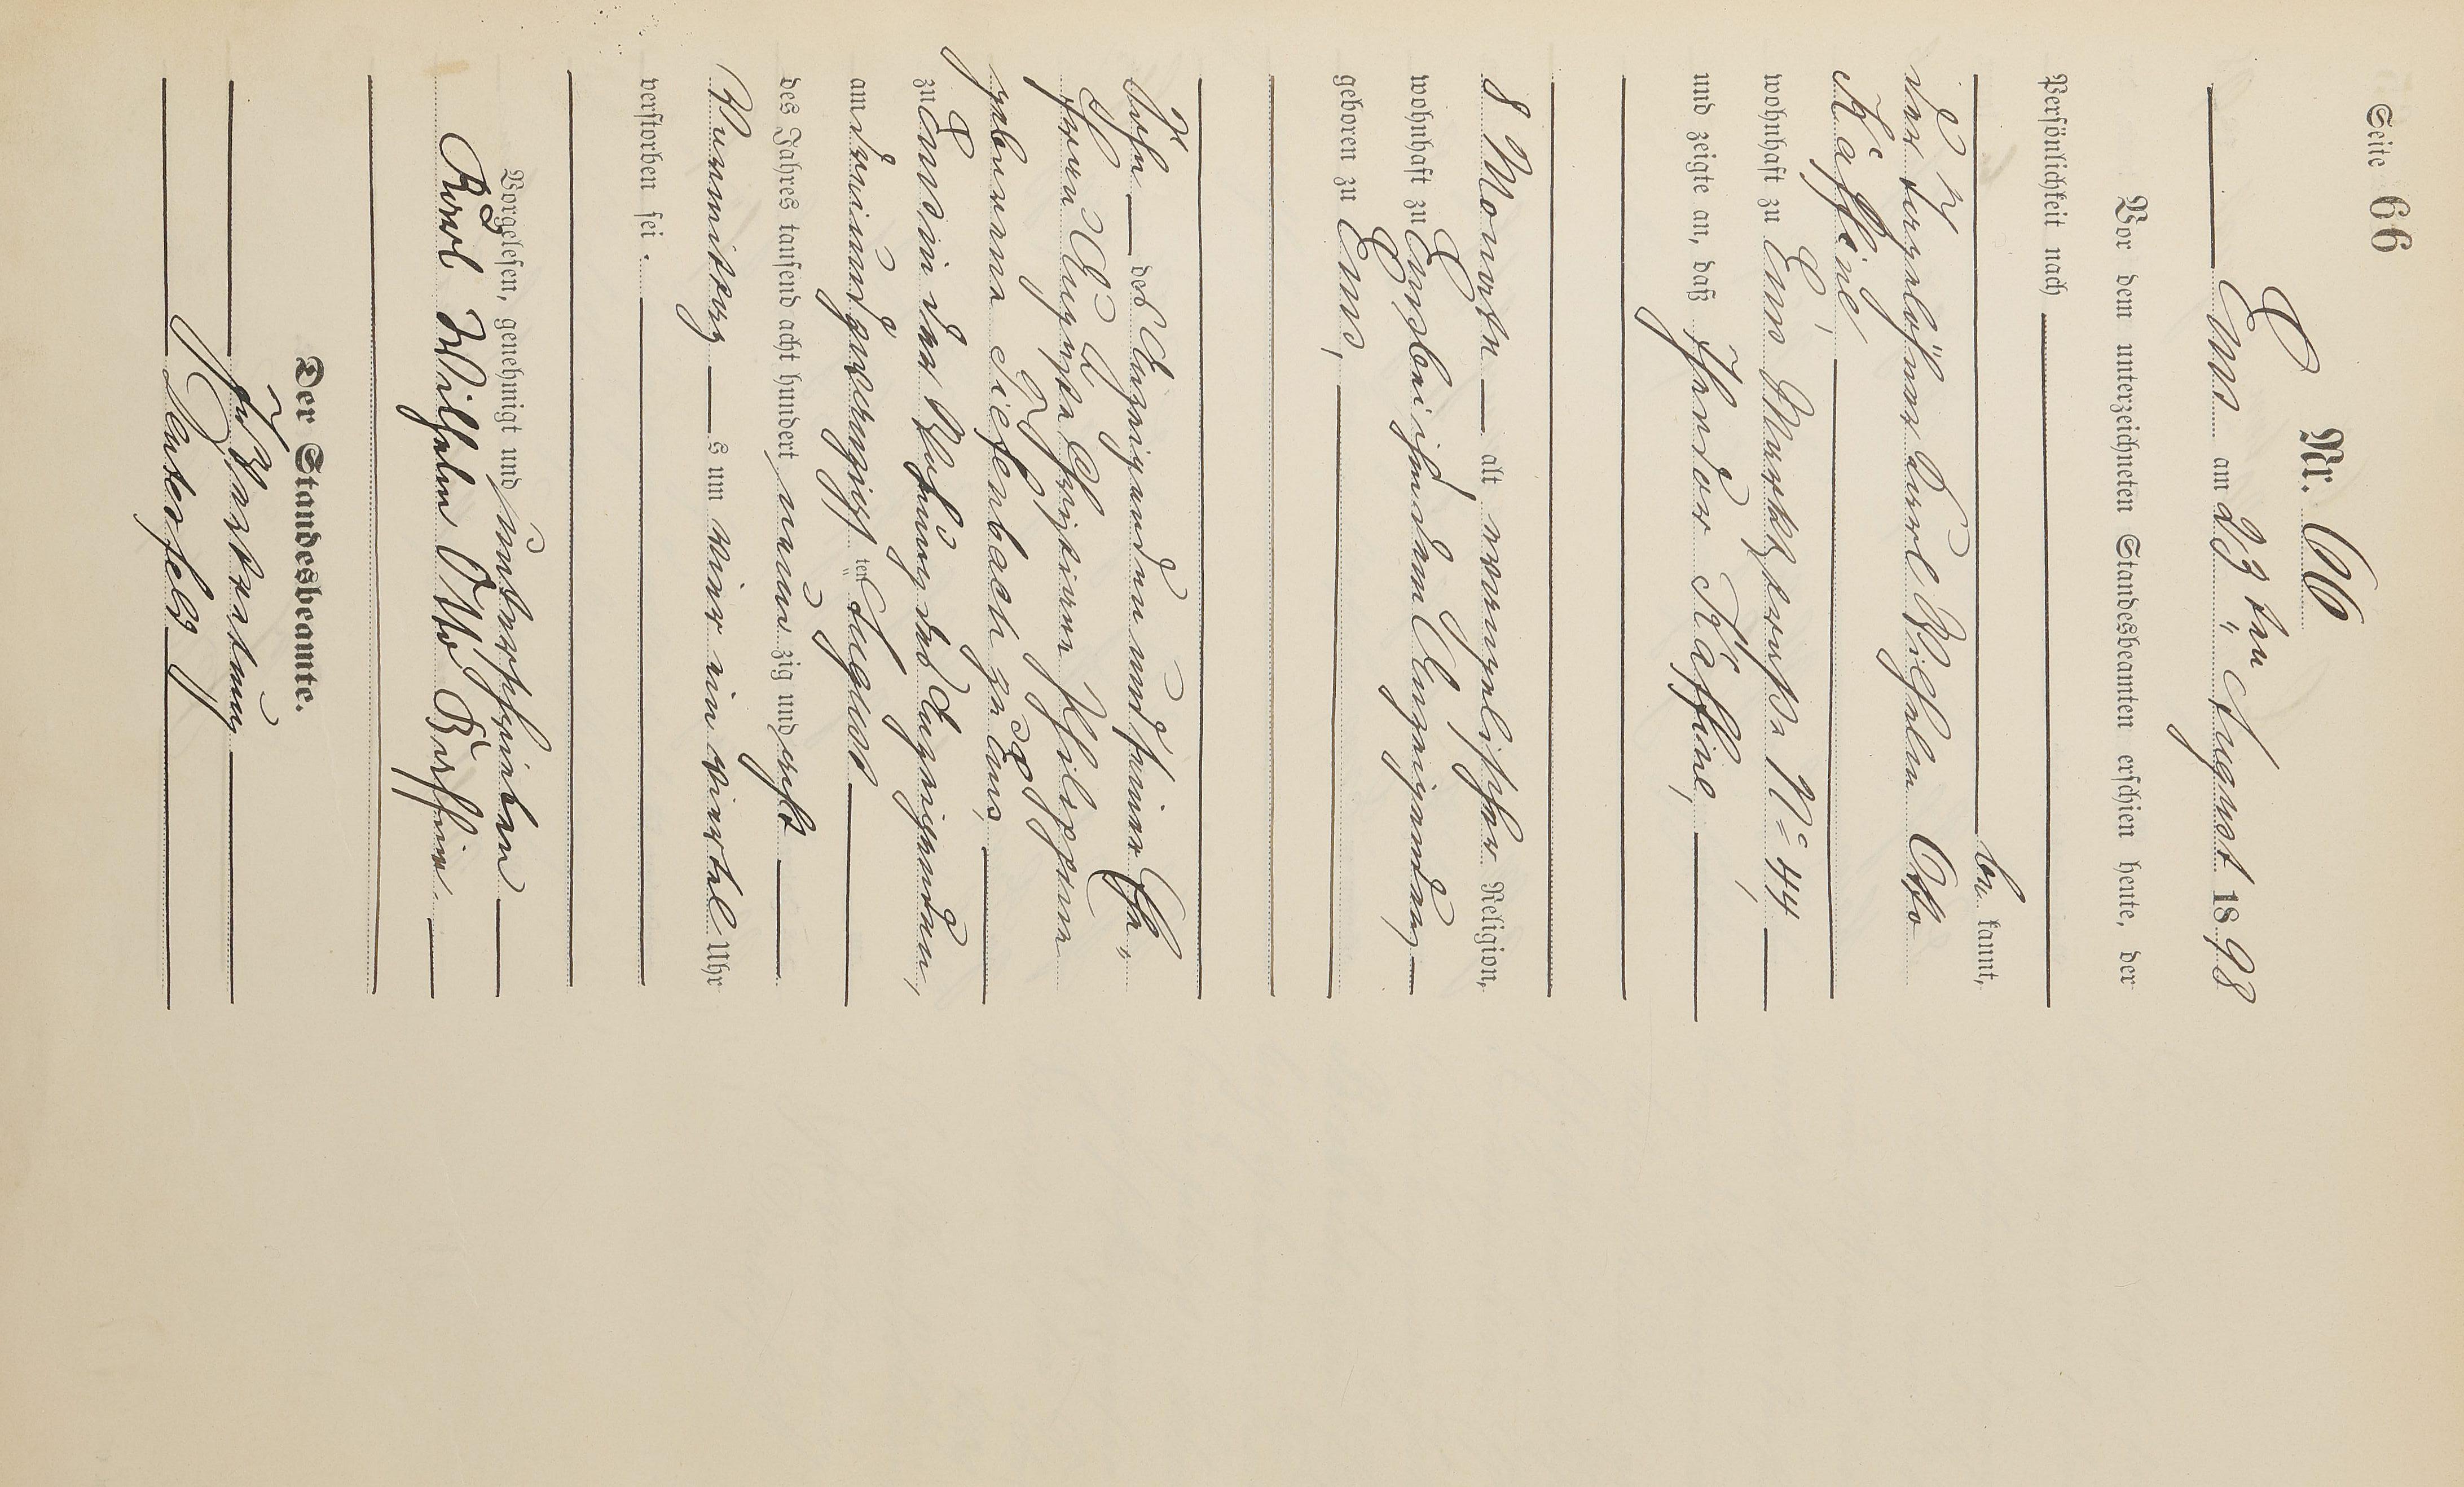 Seite 66
Nr. 66
Ems am 23ten August 1898
Vor dem unterzeichneten Standesbeamten erschien heute, der
Persönlichkeit nach
be kannt,
der Tagelöhner Carl Wilhelm Otto
Käffine,
wohnhaft zu Ems Marktstraße No 44,
und zeigte an, daß Theodor Käffine,
8 Monate alt evangelischer Religion,
wohnhaft zu Ems bei ihm dem Anzeigenden,
geboren zu Ems,
Sohn des Anzeigenden und seiner Ehe-
frau Auguste Christiane Philippine
geborene Diefenbach zu Ems,
zu Ems in der Wohnung des Anzeigenden,
am dreiundzwanzigsten August
des Jahres tausend acht hundert neun zig und acht
Vormittags um vier ein viertel Uhr
verstorben sei.
Vorgelesen, genehmigt und unterschrieben
Karl Wilhelm Otto
Der Standesbeamte.
In Vertretung